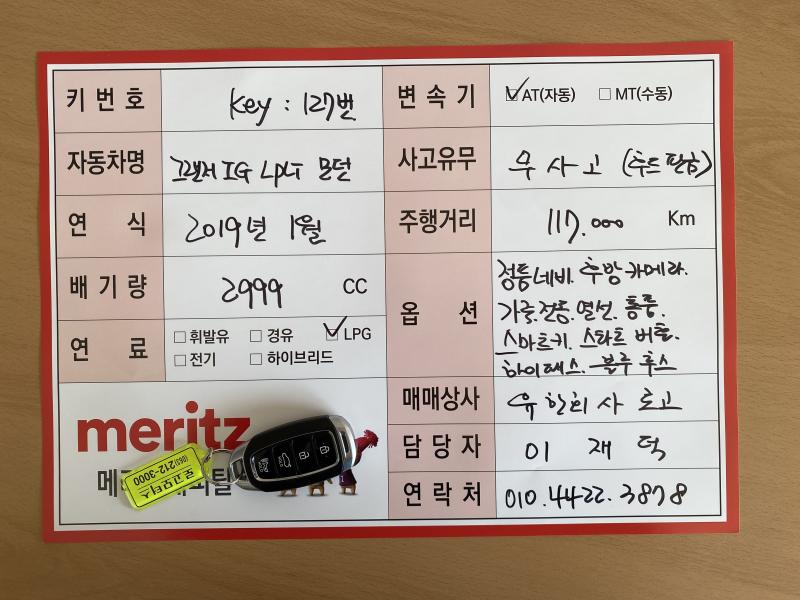 키 번호 key : 127번
변속기 ☑AT(자동) ☐MT(수동)
자동차명 그랜저 IG LPG 모던
사고유무 무 사고 (후드 판금)
연 식 2019년 1월
주행거리 117.000 Km
배기량 2999 CC
옵 션 정품네비. 후방카메라.
가죽.전동.열선.통풍.
스마트키. 스타트 버튼.
하이패스. 블루투스
연 료 ☐휘발유 ☐경유 ☑LPG
☐전기 ☐하이브리드
매매상사 유한회사 로고
담당자 이 재 덕
연락처 010.4422.3878
meritz
메 피탈
로고모터스
(063)212-3000